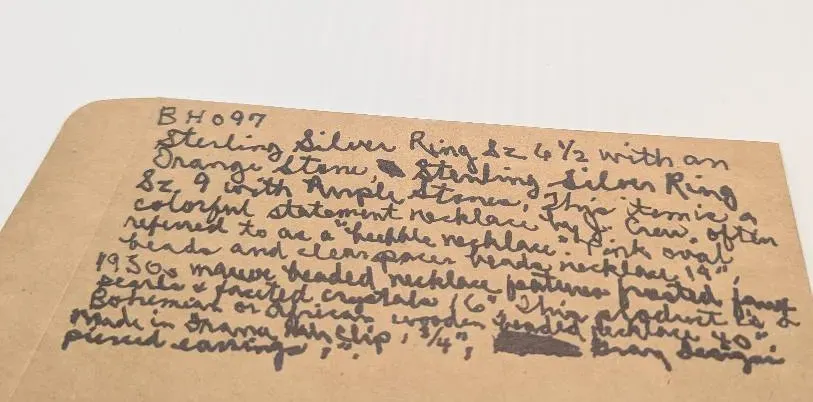 BH097
Sterling Silver Ring Sz 6 1/2 with an
Orange Stone, Sterling Silver Ring
Sz 9 with Purple Stones, This item is a
colorful statement necklace by J. Crew, often
referred to as a "bubble necklace" Pink oval
beads and clear spacer beads necklace 19",
1930s mauve beaded necklace features frosted faux
pearls & faceted crystals 16" This product is a
Bohemian or African wooden beaded necklace 40"
made in Hair Clip, 3/4", Gray
pierced earrings, 1".